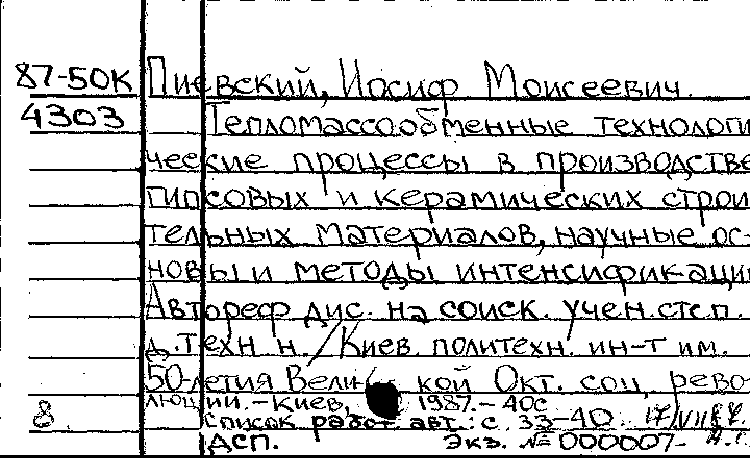 87-50К Пиевский, Иосиф Моисеевич.
4303 Тепломассообменные технологи
ческие процессы в производстве
гипсовых и керамических строи
тельных материалов, научные ос-
новы и методы интенсификации
Автореф дис. на соиск. учен. степ.
д. техн н. / Киев. политехн. ин-т им.
50-летия Вели кой Окт. соц. рево-
люции. - Киев, 1987. - 40с
8 Список работ авт.: с. 33-40
ДСП. Экз. № 000007-